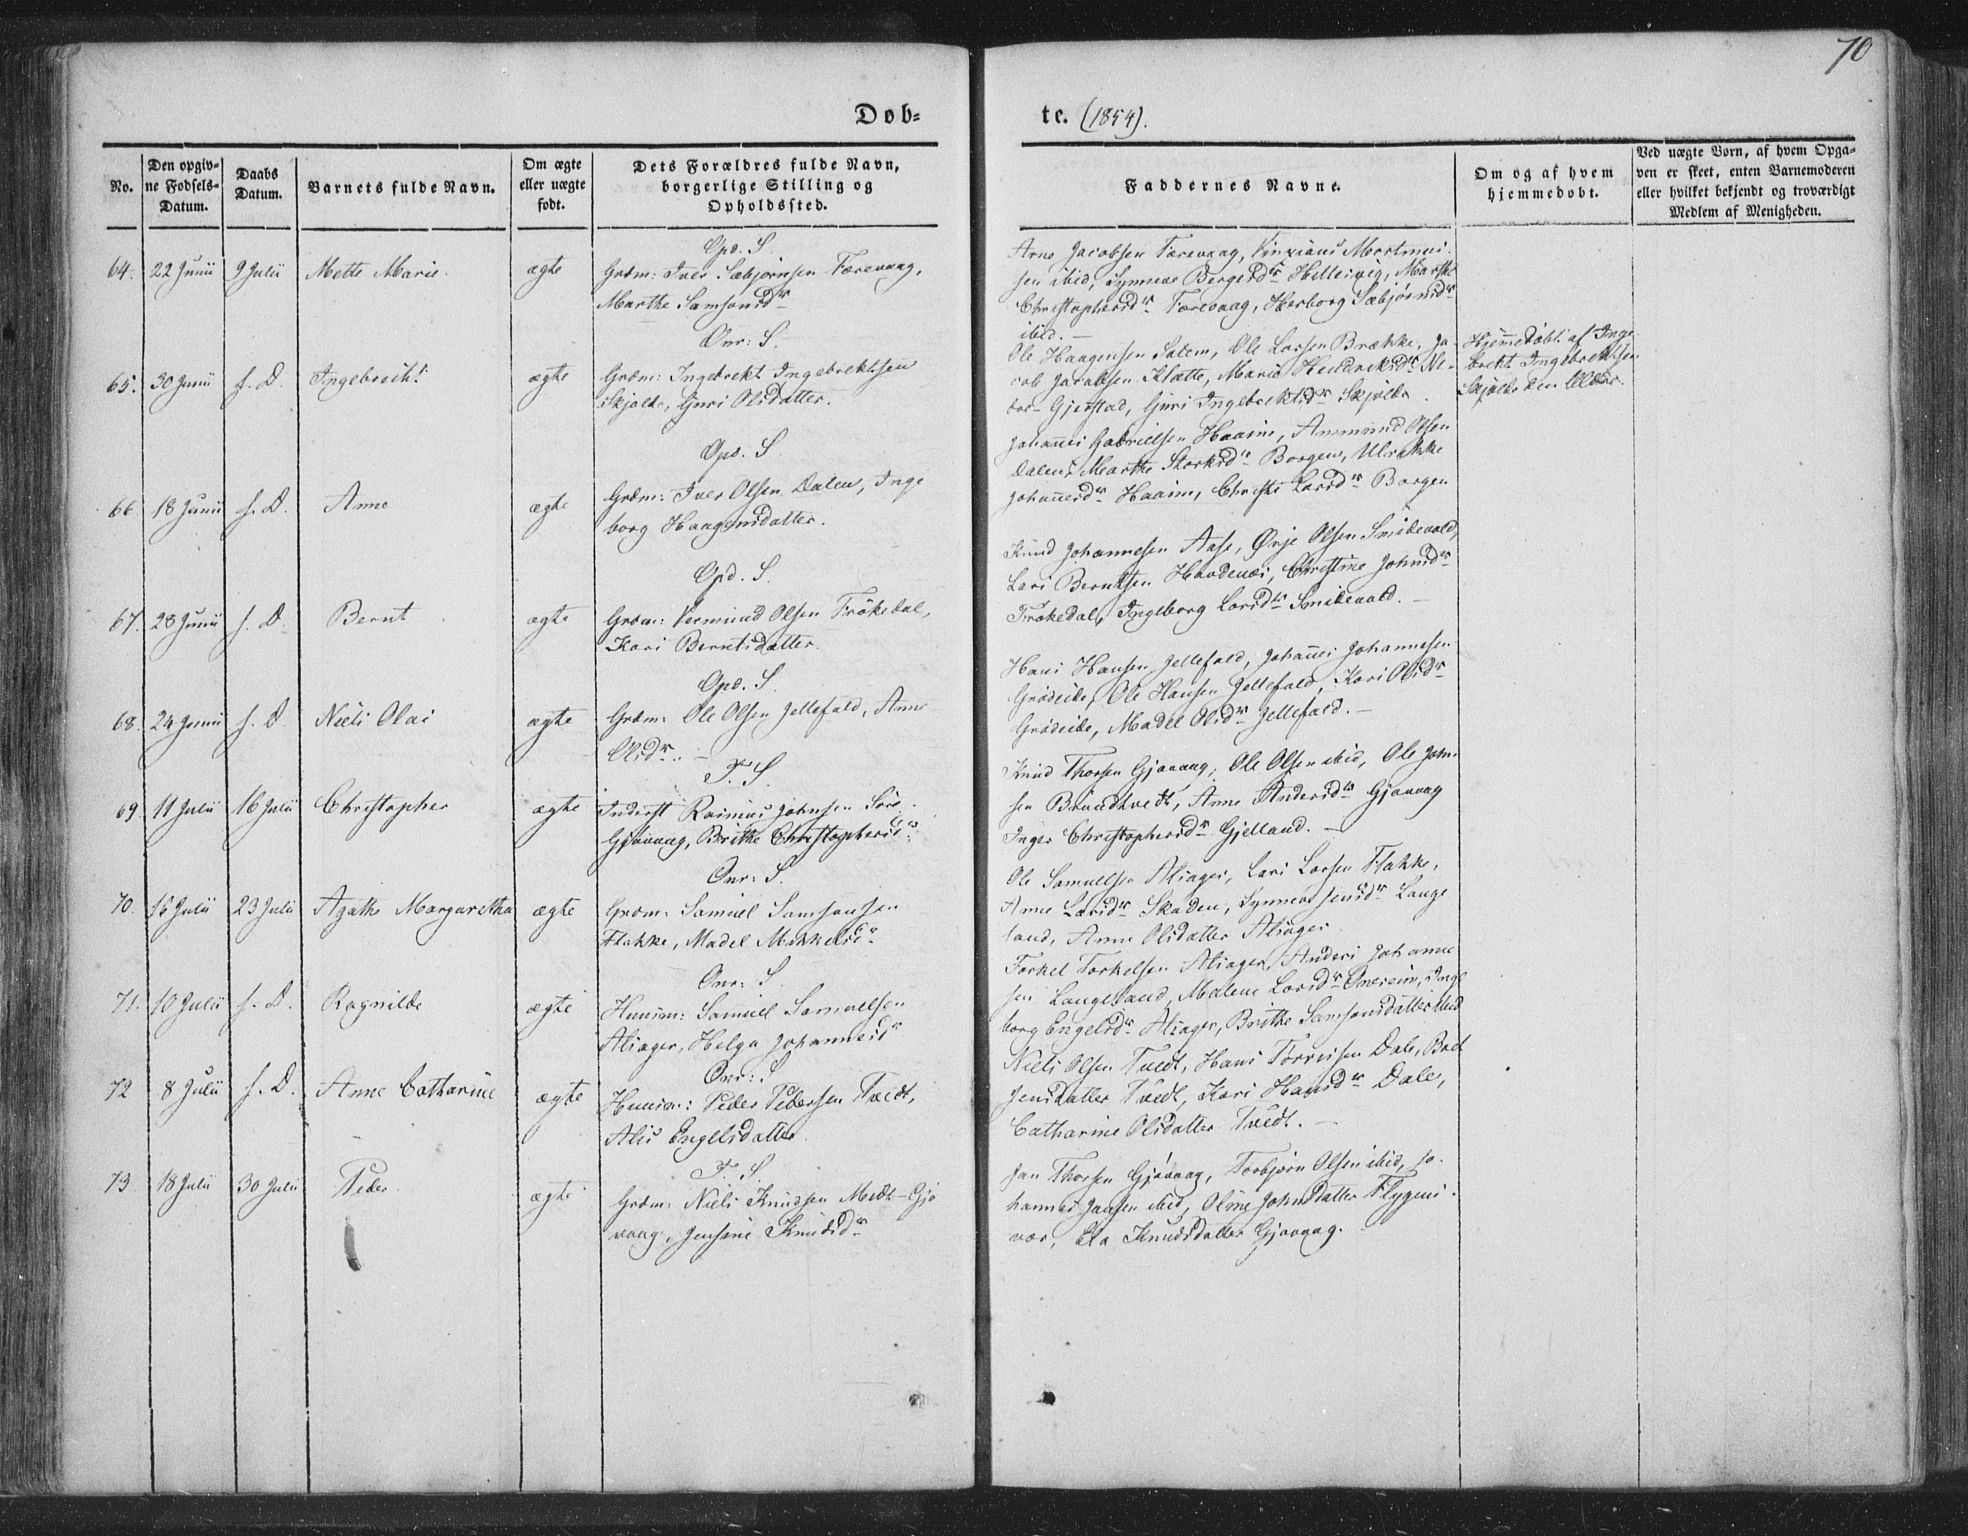 70
Døb-
te. (1854).
No.
Den opgiv-
ne Fødsels-
Datum.
Daabs
Datum.
Barnets fulde Navn.
Om ægte
eller uægte
født.
Dets Forældres fulde Navn,
borgerlige Stilling og
Opholdssted.
Faddernes Navne.
Om og af hvem
hjemmedøbt.
Ved uægte Børn, af hvem Opga-
ven er skeet, enten Barnemoderen
eller hvilket bekjendt og troværdigt
Medlem af Menigheden.
Opd. S.
64. 22 Junii 9 Julii Mette Marie. ægte Grdm: Iver Sæbjørnsen Færevaag,
Marthe Samsonsdr
Arne Jacobsen Færevaag, Mortmen-
sen ibid, Synneve Bergesdr Hillesvig, Marthe
Christophersdr Færevaag, Herborg Sæbjørnsdr
ibid. —
Onr: S.
65. 30 Junii s. D. Ingebreckt ægte Grdm: Ingebrekt Ingebrektsen
Skjolde, Guri Olsdatter.
Ole Haagensen Salem, Ole Larsen Brække, Ja-
cob Jacobsen Klætte, Marie Hendriksdr Ne-
dre Gjerstad, Guri Ingebrektsdr Skjolde.
Hjemmedøbt af Inge-
brekt Ingebrektsen
Skjolde den Ældre.
Opd. S.
66. 18 Junii s. D. Anne ægte Grdm: Iver Olsen Dalen, Inge
borg Haagensdatter.
Johannes Gabrielsen Haaim, Ammund Olsen
Dalen, Marthe Storksdr Borgen, Ulrikke
Johannesdr Haaim, Christi Larsdr Borgen
Opd. S.
67. 28 Junii s. D. Bernt ægte Grdm: Vermund Olsen Frökedal,
Kari Berntsdatter.
Knud Johannesen Aase, Ørje Olsen Smidevold,
Lars Berntsen Havdenæs, Christine Johnsdr
Frökedal, Ingeborg Larsdr Smidevold. —
Opd. S.
68. 24 Junii s. D. Niels Olai ægte Grdm: Ole Olsen Jellefald, Anne
Olsdr. —
Hans Hansen Jellefald, Johannes Johannesen
Grödeide, Ole Hansen Jellefald, Kari Olsdr
Grödeide, Madel Olsdr Jellefald. —
F. S.
69. 11 Julii 16 Julii Christopher ægte Inderst Rasmus Johnsen Söre
Gjövaag, Brithe Christophersdr
Knud Thorsen Gjövaag, Ole Olsen ibid, Ole John
sen Brændtvedt, Anne Andersdr Gjövaag
Inger Christophersdr Gjelland. —
Onr: S.
70. 16 Julii 23 Julii Agathe Margaretha ægte Grdm: Samuel Samsonsen
Flakke, Madel Mikkelsdr
Ole Samuelsen Aliager, Lars Larsen Flakke,
Anne Larsdr Skaden, Synneve Jensdr Lange
land, Anne Olsdatter Aliager
Onr: S.
71. 10 Julii s. D. Ragnilde ægte Huusm: Samuel Samuelsen
Aliager, Helga Johannesdr
Torkel Torkelsen Aliager, Anders Johanne
sen Langeland, Malene Larsdr Onereim, Inge
borg Engelsdr Aliager, Brithe Samsonsdatter ibid
Onr: S.
72 8 Julii s. D. Anne Catharine ægte Huusm: Peder Pedersen Tvedt,
Alis Engelsdatter.
Niels Olsen Tvedt, Hans Torrissen Dale,
Jensdatter Tvedt, Kari Hansdr Dale,
Catharine Olsdatter Tvedt. —
F. S.
73 18 Julii 30 Julii Peder. ægte Grdm: Niels Knudsen Midt-Gjö
vaag, Jensine Knudsdr
Jan Thorsen Gjövaag, Torbjörn Olsen ibid, Jo-
hannes Jansen ibid, Oline Johnsdatter Flygens-
vær, Ela Knudsdatter Gjövaag.